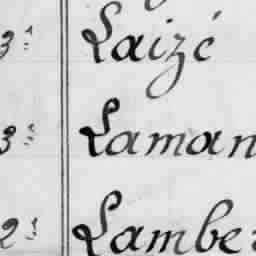 3: Laizé
3: Laman
2: Lamber